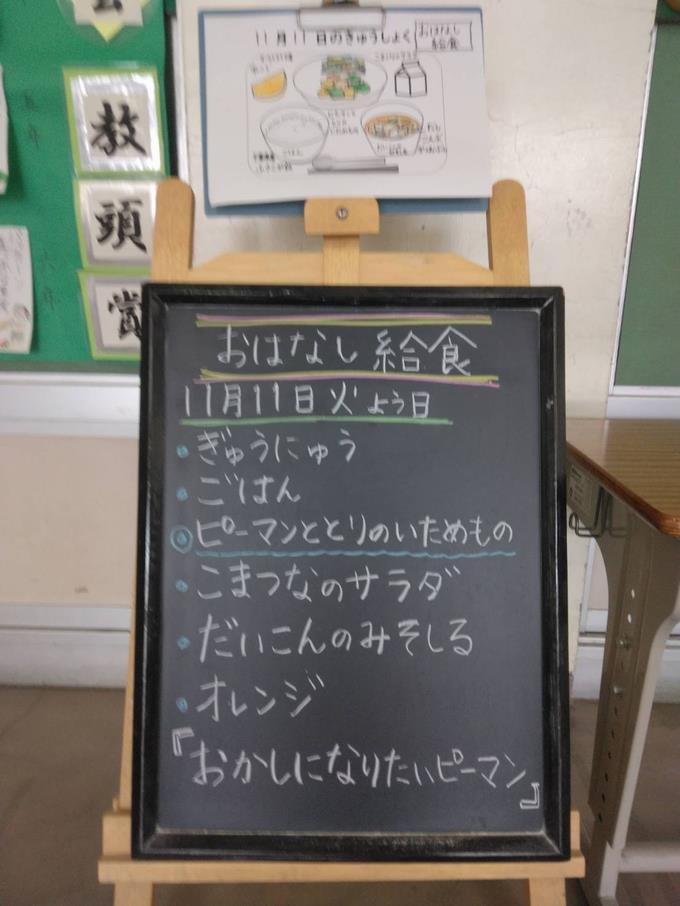 11月11日のきゅうしょく
おはなし
給食
教
頭
賞
おはなし給食
11月11日火よう日
・ぎゅうにゅう
・ごはん
◎ピーマンととりのいためもの
・こまつなのサラダ
・だいこんのみそしる
・オレンジ
『おかしになりたいピーマン』